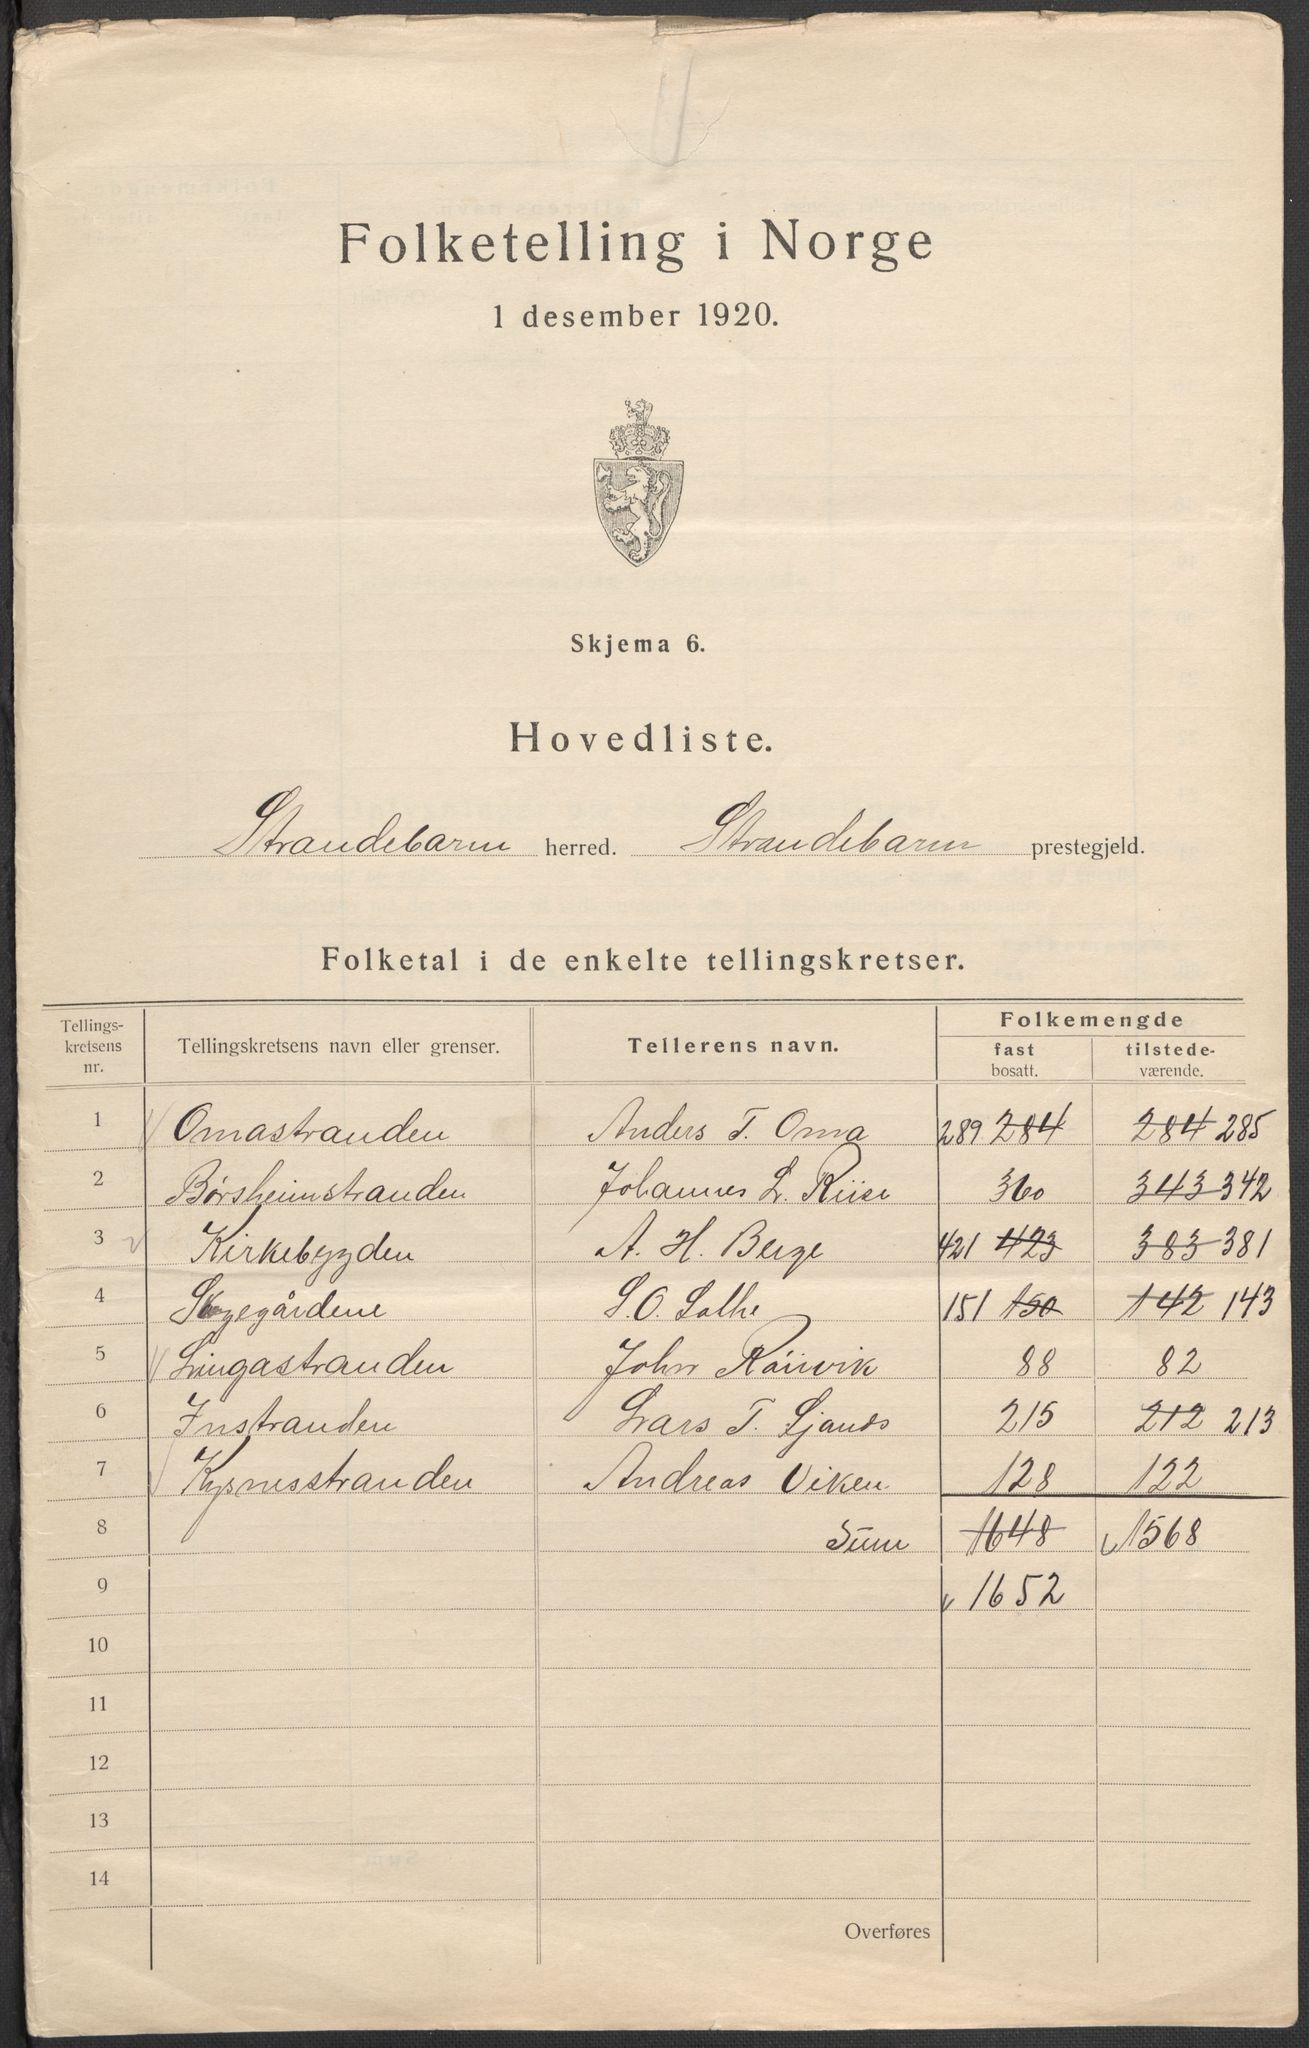 Folketelling i Norge
1 desember 1920.
Skjema 6.
Hovedliste.
Strandebarm herred. Strandebarm prestegjeld.
Folketal i de enkelte tellingskretser.
Tellings-
kretsens
nr.
Tellingskretsens navn eller grenser.
Tellerens navn.
Folkemengde
fast
bosatt.
tilstede-
værende.
1 Omastranden Anders T. Oma 289 284 284 285
2 Børsheimstranden Johannes L. Riise 360 343 342
3 Kirkebygden A. H. Berge 421 423 383 381
4 Skogegårdene S. O. 151 150 142 143
5 Lingastranden John 88 82
6 Instranden Lars T. 215 212 213
7 Kysnesstranden Andreas Viken 128 122
8 Sum 1648 1568
9 1652
10
11
12
13
14
Overføres